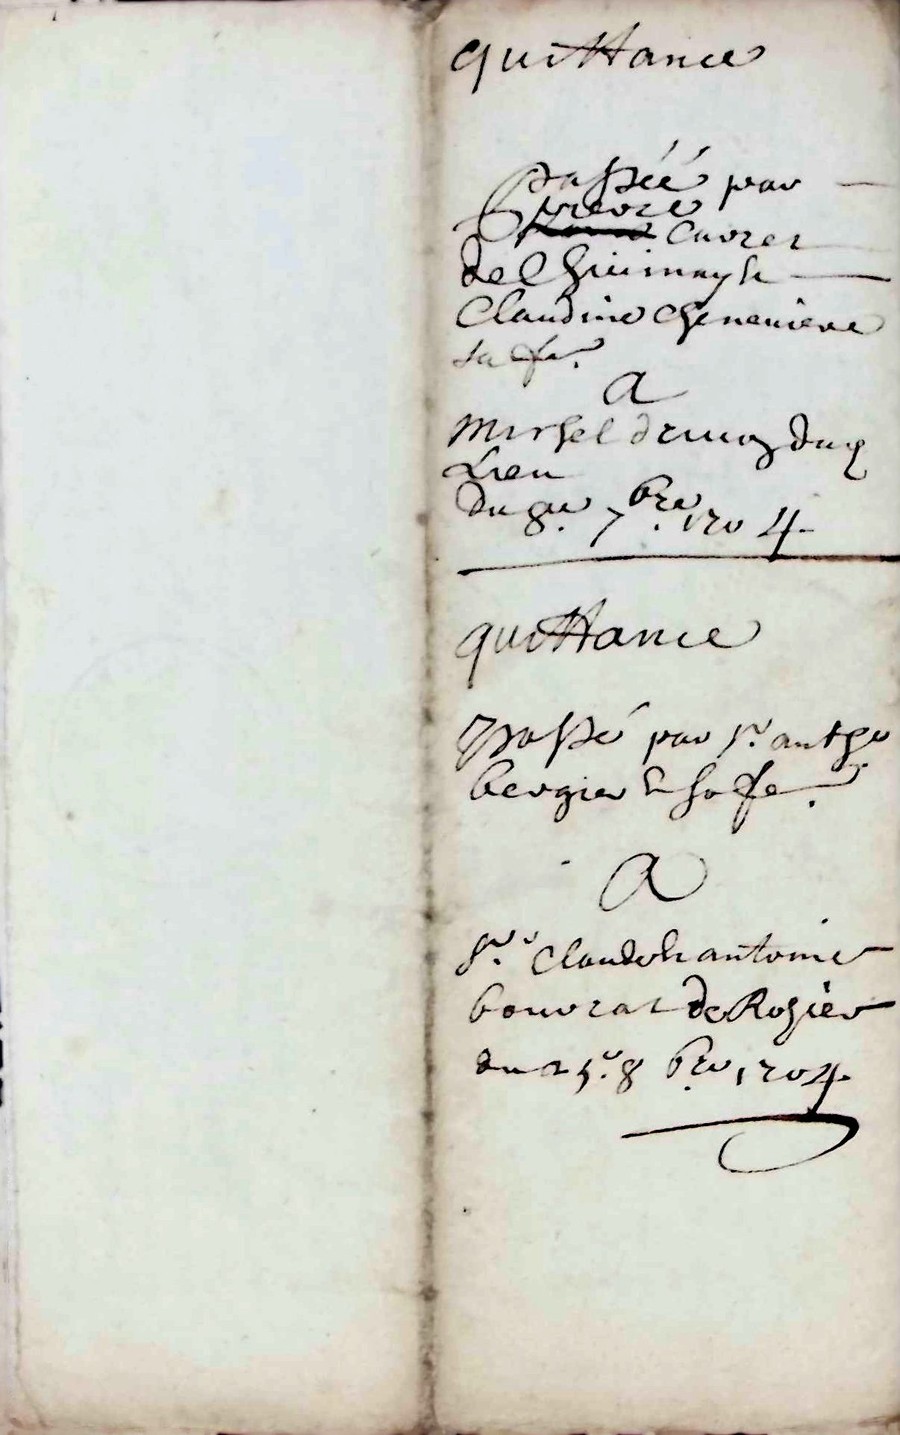 quittance
passéé par
pierre
Carret
de
Claudine Cheneviere
sa fe.
A
Michel dud
Lieu
du 8e. 7bre. 1704
quittance
Passé par Sr. anthe.
bergier & sa fe.
A
Sr. Claude antoine
bouvrat de Rozier
du 25e. 8bre. 1704